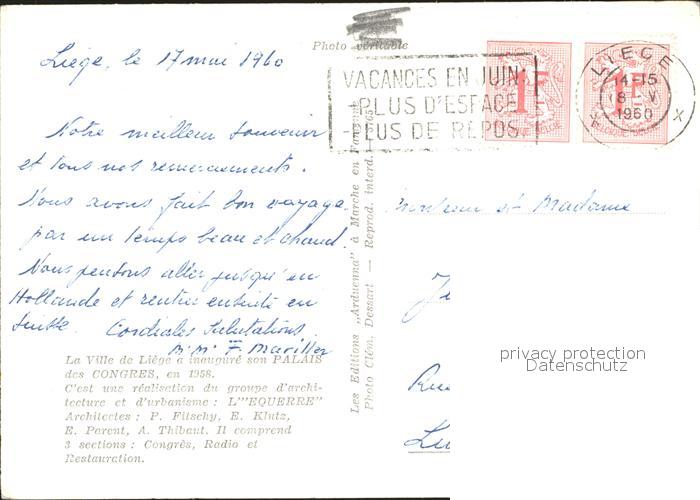 Photo véritable
Liége, le 17 mai 1960
VACANCES EN JUIN:
PLUS D'ESPACE
PLUS DE REPOS
1F
1F
LIEGE X
14-15
1960
X X
Notre meilleur souvenir
et tous nos remerciements.
Nous avons fait bon voyage
par un temps beau et chaud
Nous pensons aller jusqu'en
Hollande et rentrer ensuite en
Suisse. Cordiales salutations.
F. Mariller
Monsieur et Madame
Ru
Lu
Les Editions „Arduenna" à Marche en Famenne
Photo Cléon. Dessart — Reprod. interd.
La Ville de Liége a inauguré son PALAIS
des CONGRES, en 1958.
C'est une réalisation du groupe d'archi-
tecture et d'urbanisme : L'"EQUERRE"
Architectes : P. Fitschy, E. Klutz,
E. Parent, A. Thibaut. Il comprend
3 sections : Congrès, Radio et
Restauration.
privacy protection
Datenschutz